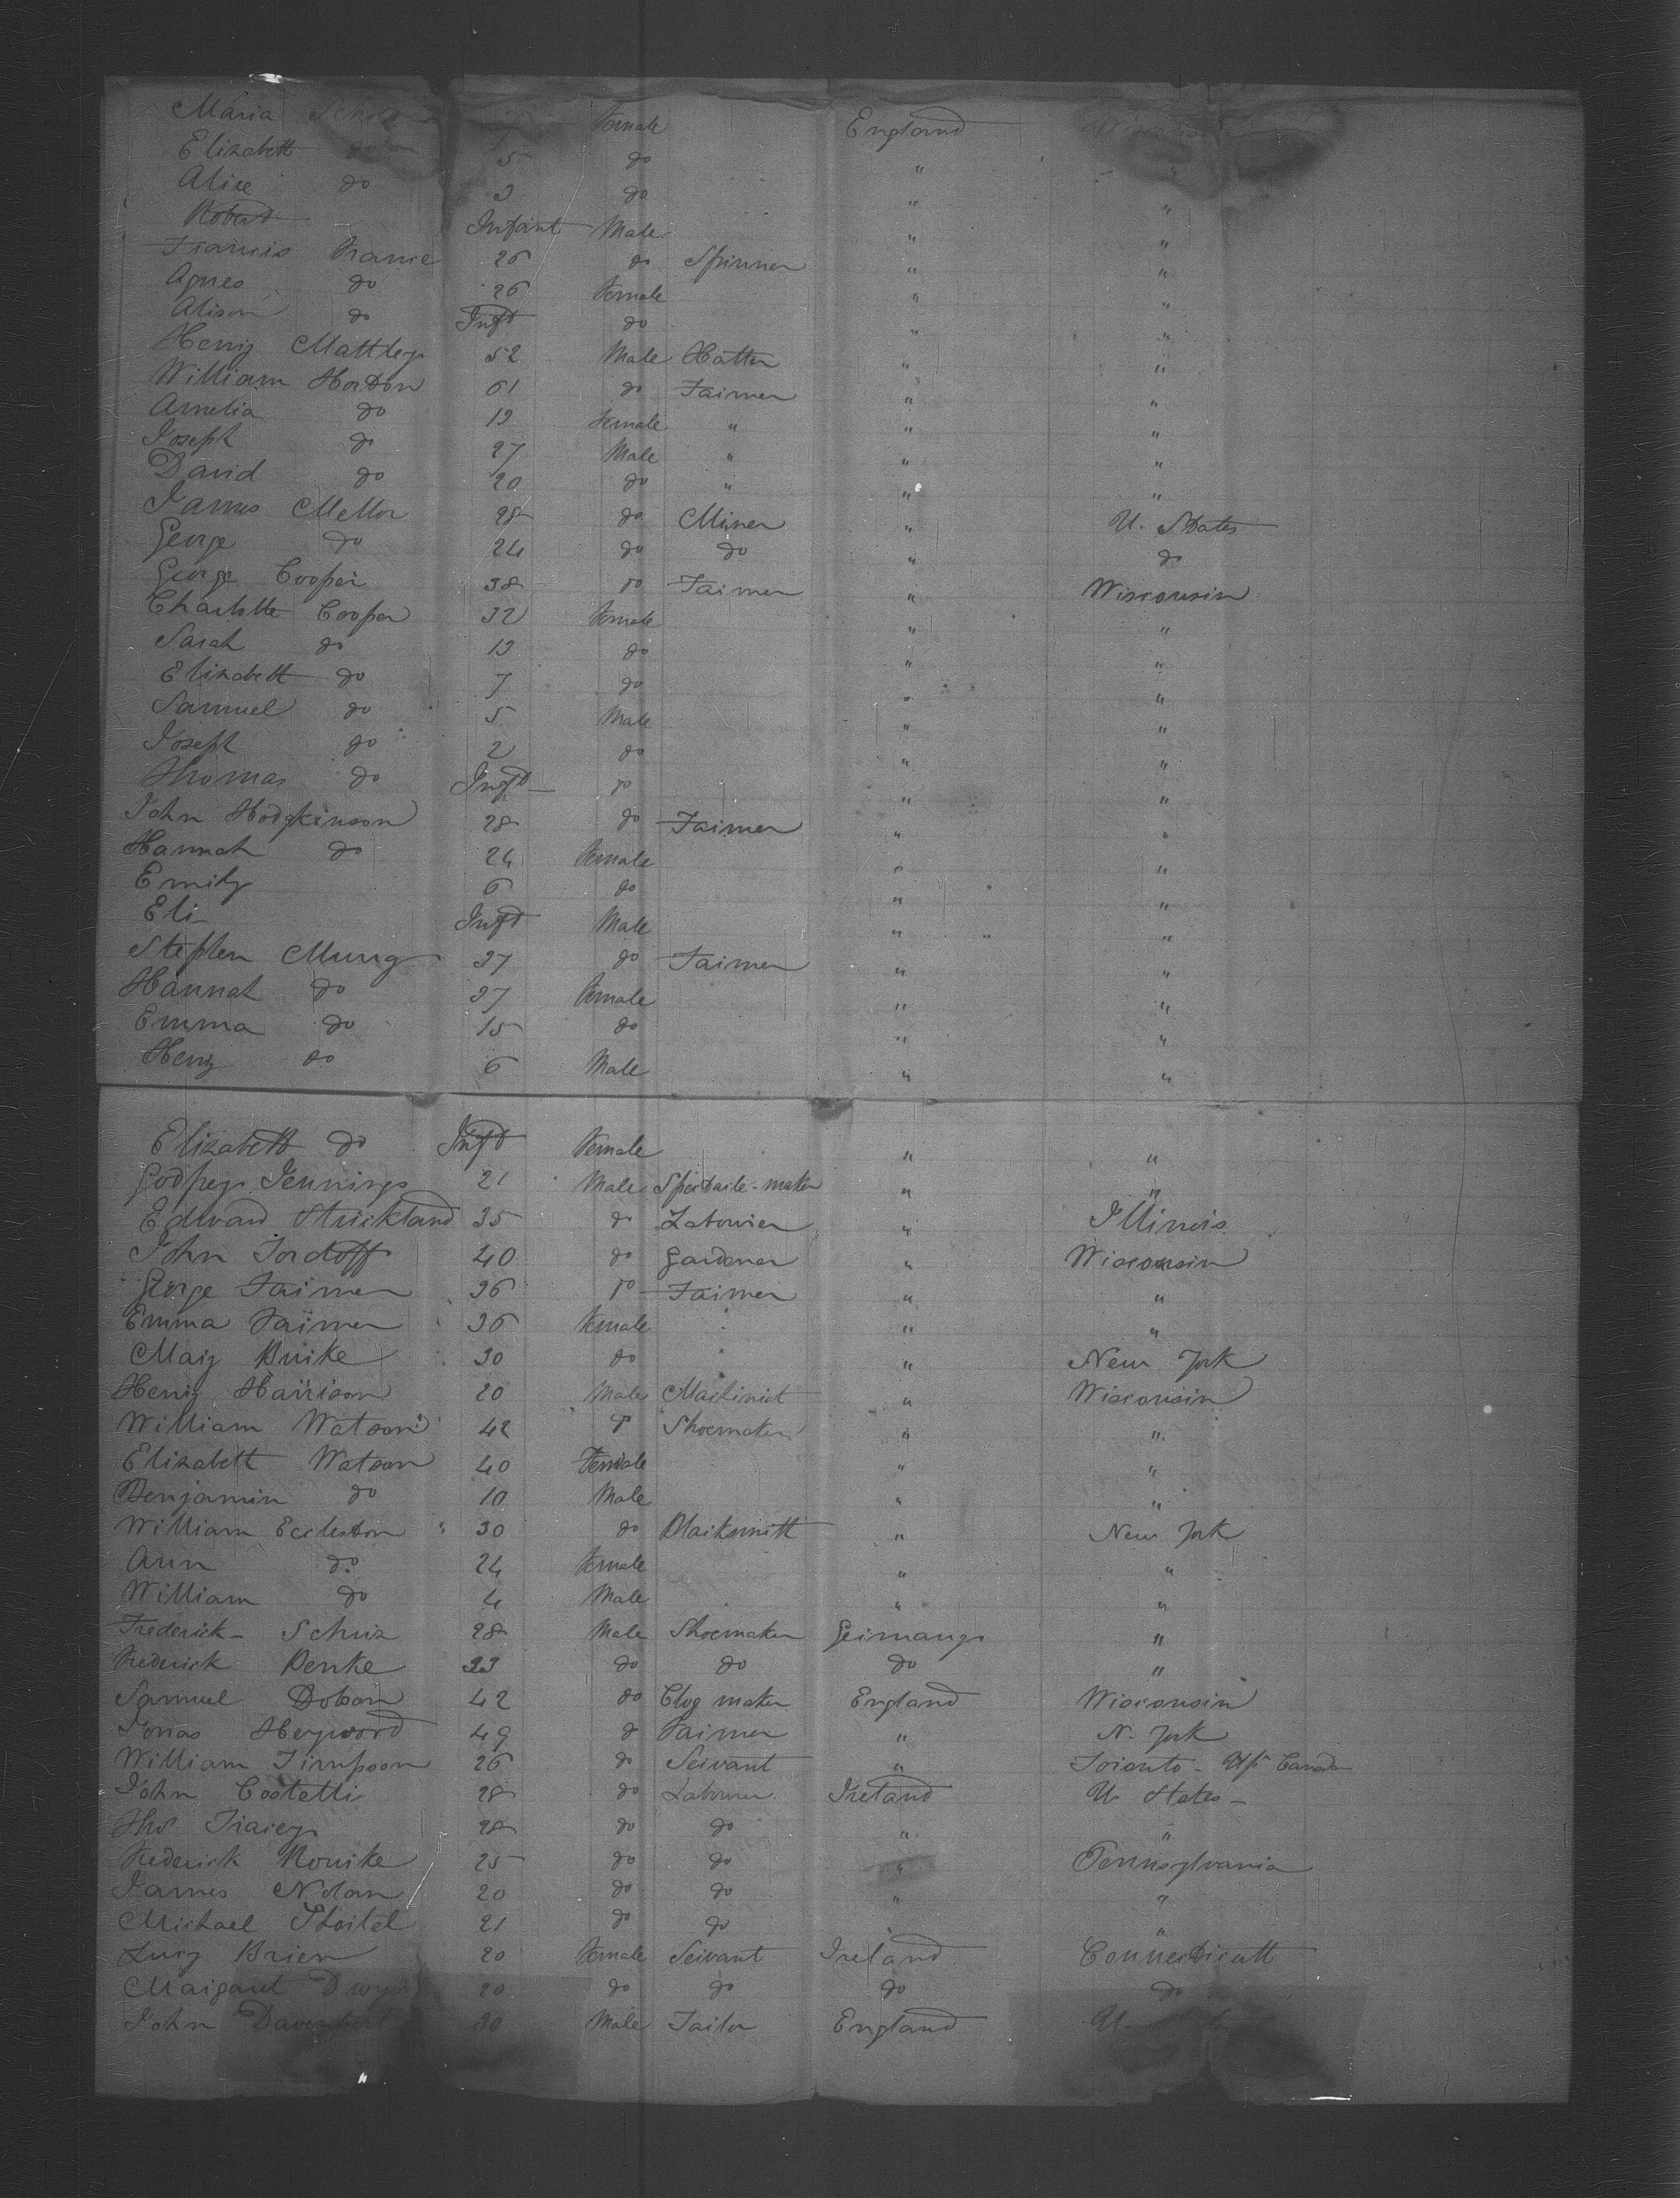 Maria 7 Female England
Elizabeth do 5 do "
Alice do 3 do " "
Robert Infant Male " "
Francis France 26 do Spinner " "
Agnes do 26 Female " "
Alison do Inft do " "
Henry Mattley 52 Male Hatter " "
William Hordon 61 do Farmer " "
Amelia do 19 Female " " "
Joseph do 27 Male " " "
David do 20 do " " "
James Mellor 28 do Miner " U. States
George do 24 do do " do
George Cooper 38 do Farmer " Wisconsin
Charlotte Cooper 32 Female " "
Sarah do 13 do " "
Elizabeth do 7 do " "
Samuel do 5 Male " "
Joseph do 2 do " "
Thomas do Inft do " "
John Hodgkinson 28 do Farmer " "
Hannah do 24 Female " "
Emily 6 do " "
Eli Inft Male " "
Stephen Mung 37 do Farmer " "
Hannah do 37 Female " "
Emma do 15 do " "
Henry do 6 Male " "
Elizabeth do Inft Female " "
Godfrey Jennings 21 Male " "
Edward Strickland 35 do Labourer " Illinois
John Tordoff 40 do Gardener " Wisconsin
George Farmer 36 do Farmer " "
Emma Farmer 36 Female " "
Mary Burke 30 do " New York
Henry Harrison 20 Male Machinist " Wisconsin
William Watson 42 do Shoemaker " "
Elizabeth Watson 40 Female " "
Benjamin do 10 Male " "
William Eccleston 30 do Blacksmith " New York
Ann do 24 Female " "
William do 4 Male " "
Frederick Schuiz 28 Male Shoemaker Germany "
Frederick Penke 23 do do do "
Samuel Dobson 42 do Clog maker England Wisconsin
Jonas Heyword 49 do Farmer " N. York
William Timpson 26 do Servant " Toronto - Up Canada
John Costelli 28 do Labourer Ireland U States -
Thos Tracey 28 do do " "
Frederick Rourke 25 do do " Pennsylvania
James Nolan 20 do do " "
Michael 21 do do " "
Lucy Brien 20 Female Servant Ireland Connecticutt
Margaret Dwyer 20 do do do do
John Davenport 30 Male Tailor England U.